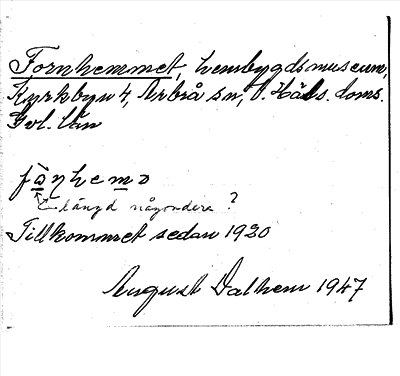 Fornhemmet, hembygdsmuseum,
Kyrkbyn 4, Arbrå sn, V. Häls. doms.
Gvl. län
få̀ɳhemə
längd någondera?
Tillkommet sedan 1930
August Dalhem 1947